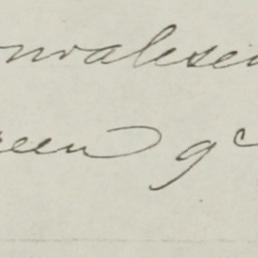 onvalesen
reen 9c